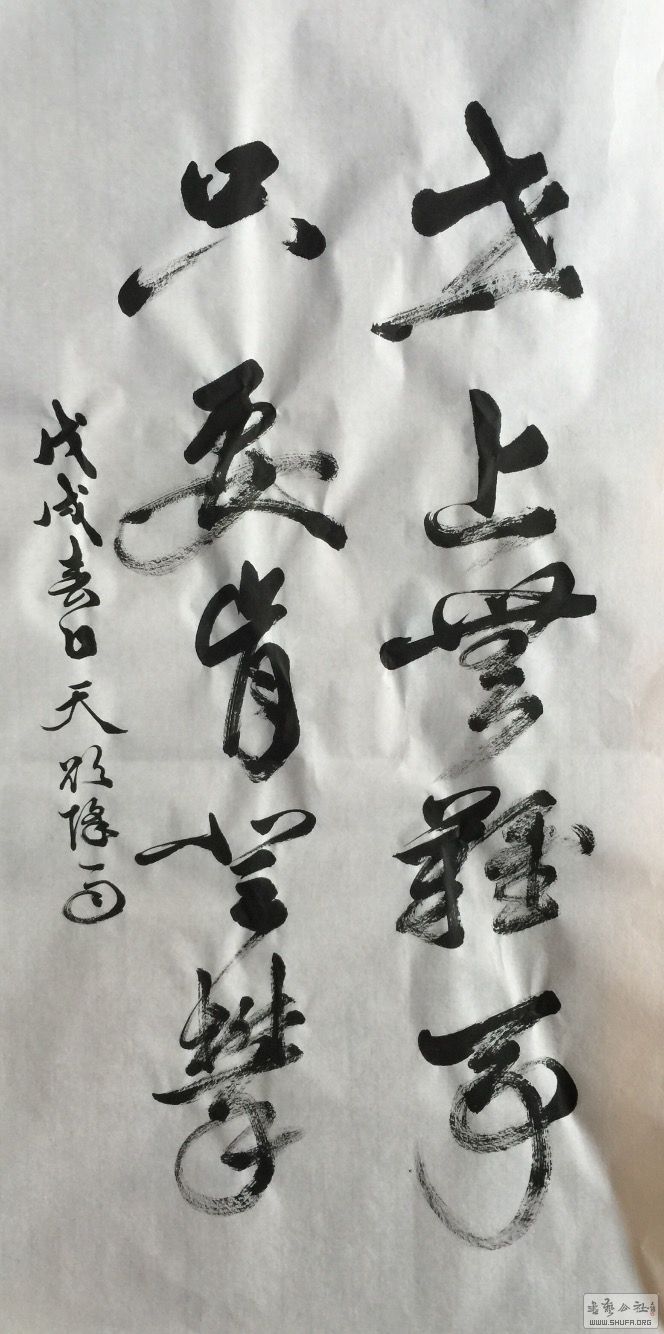 世上無難事
只要肯登攀
戊戌春日天欲降雨
書藝公社
WWW.SHUFA.ORG